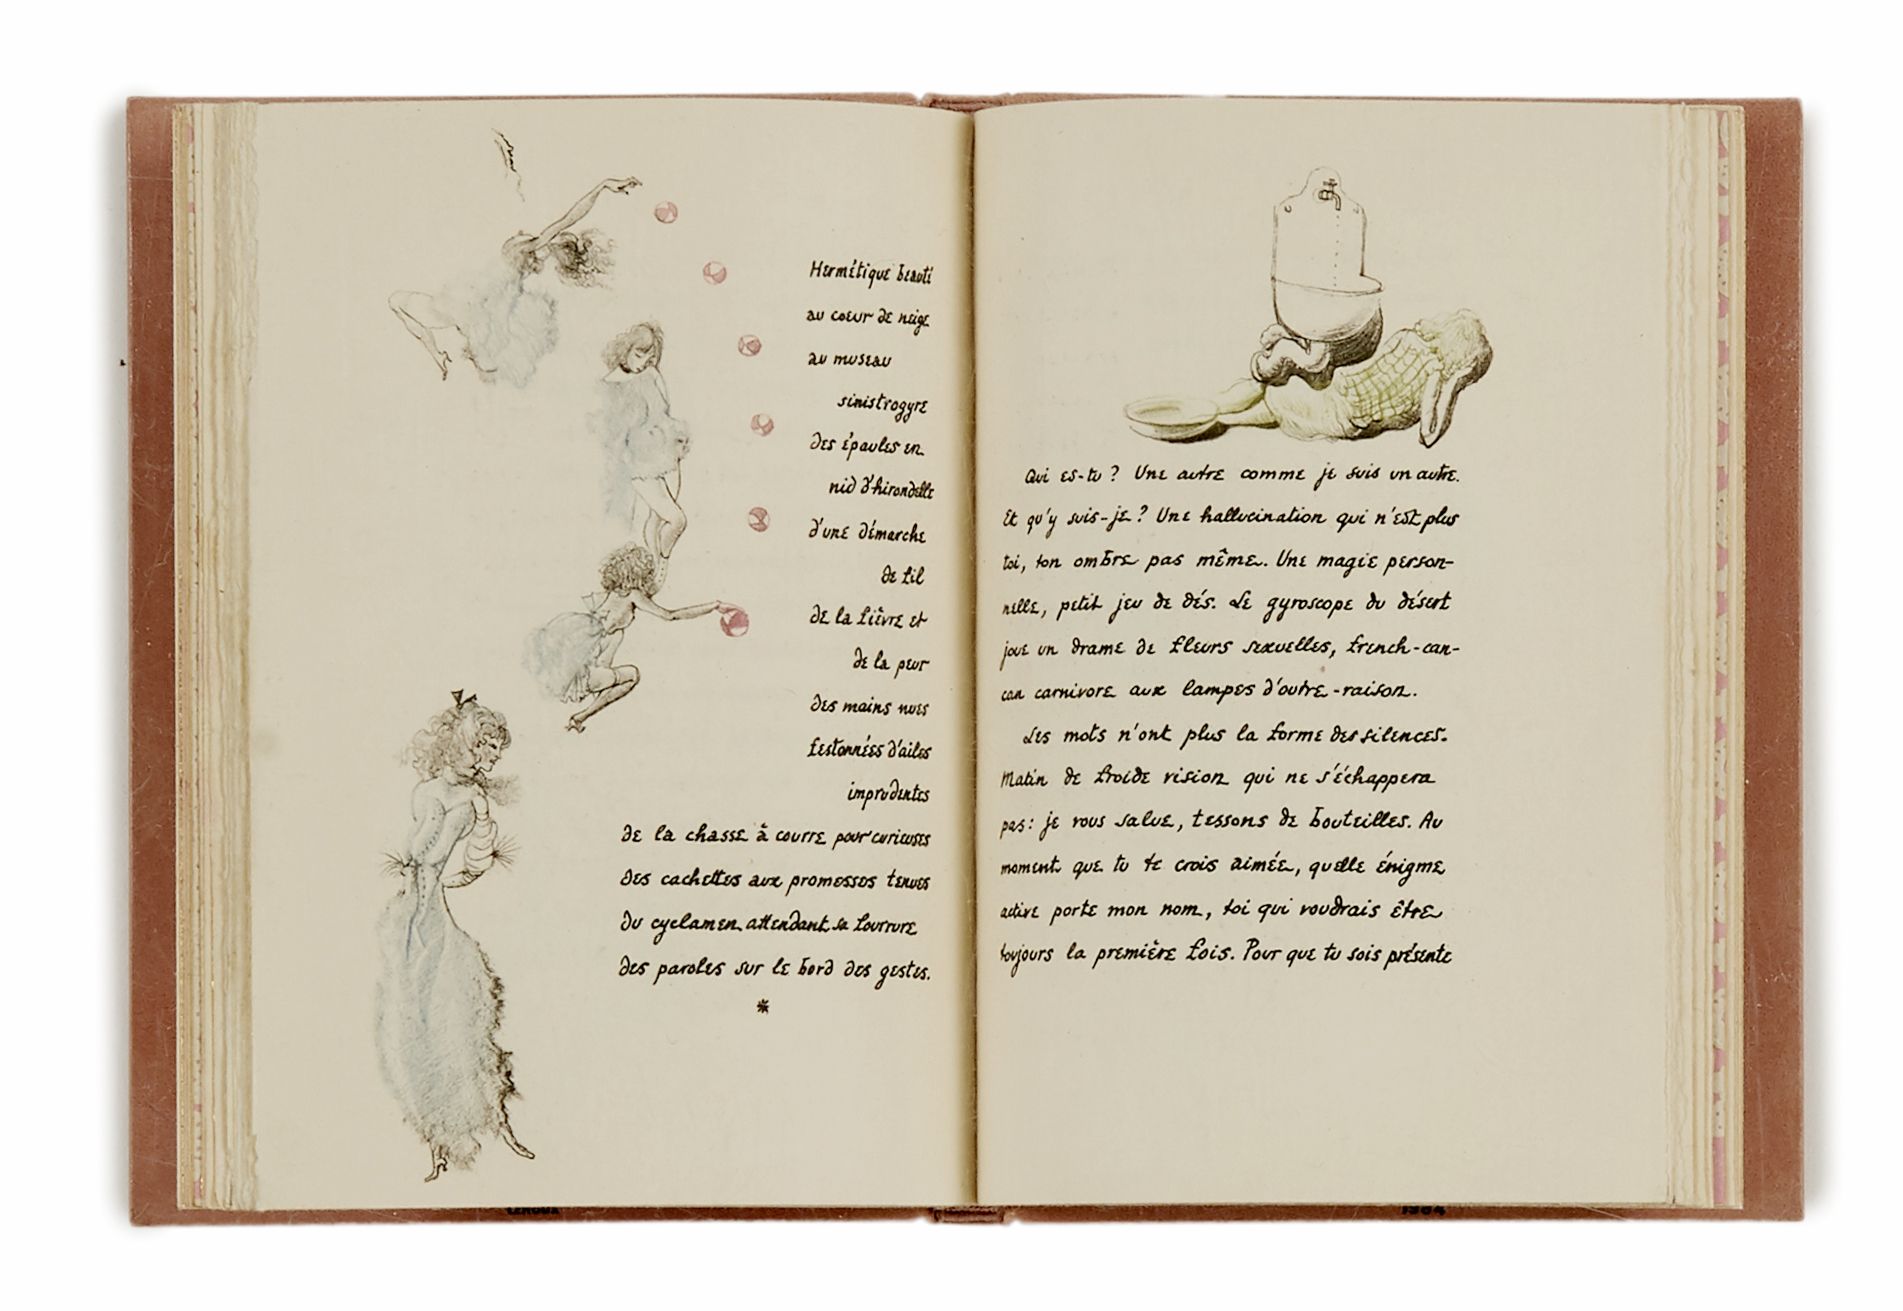 Hermétique beauté
au coeur de neige
au museau
sinistrogyre
des épaules en
nid d'hirondelle
d'une démarche
de fil
de la lièvre et
de la peur
des mains nues
festonnées d'ailes
imprudentes
de la chasse à courre pour curieuses
des cachettes aux promesses tenues
du cyclamen attendant sa fourrure
des paroles sur le bord des gestes.
*
Qui es-tu ? Une autre comme je suis un autre.
Et qu'y suis-je ? Une hallucination qui n'est plus
toi, ton ombre pas même. Une magie person-
nelle, petit jeu de dés. Le gyroscope du désert
joue un drame de fleurs sexuelles, french-can-
can carnivore aux lampes d'outre-raison.
Les mots n'ont plus la forme des silences.
Matin de froide vision qui ne s'échappera
pas : je vous salue, tessons de bouteilles. Au
moment que tu te crois aimée, quelle énigme
active porte mon nom, toi qui voudrais être
toujours la première fois. Pour que tu sois présente
LEROUX
1964